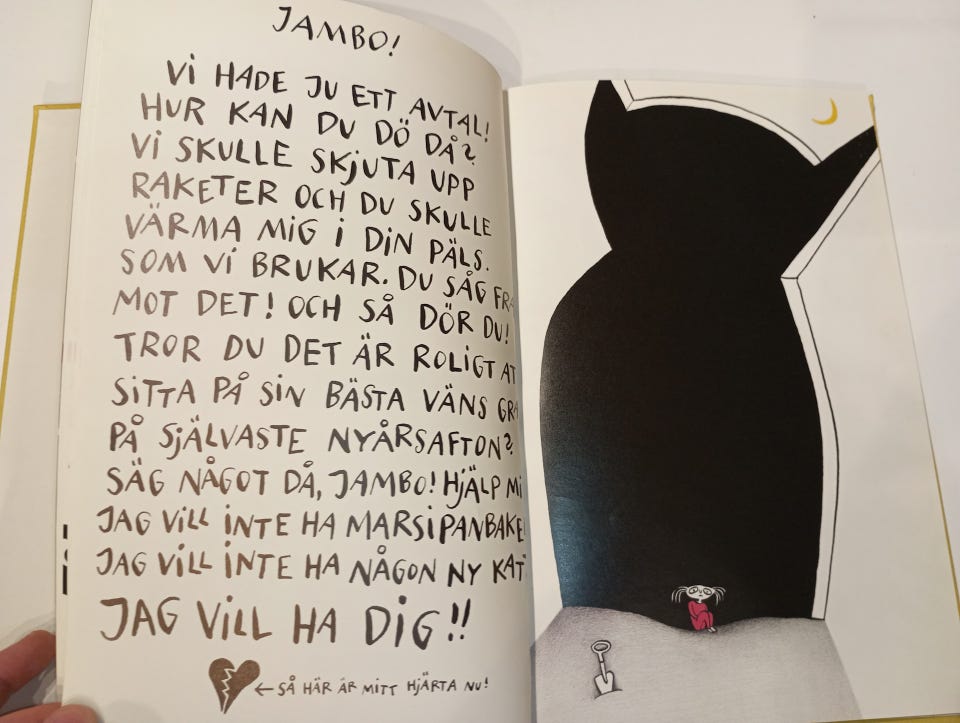 JAMBO!
VI HADE JU ETT AVTAL!
HUR KAN DU DÖ DÅ?
VI SKULLE SKJUTA UPP
RAKETER OCH DU SKULLE
VÄRMA MIG I DIN PÄLS.
SOM VI BRUKAR. DU SÅG
MOT DET! OCH SÅ DÖR DU!
TROR DU DET ÄR ROLIGT
SITTA PÅ SIN BÄSTA VÄNS
PÅ SJÄLVASTE NYÅRSAFTON?
SÄG NÅGOT DÅ, JAMBO! HJÄLP
JAG VILL INTE HA
JAG VILL INTE HA NÅGON NY
JAG VILL HA DIG!!
← SÅ HÄR ÄR MITT HJÄRTA NU!